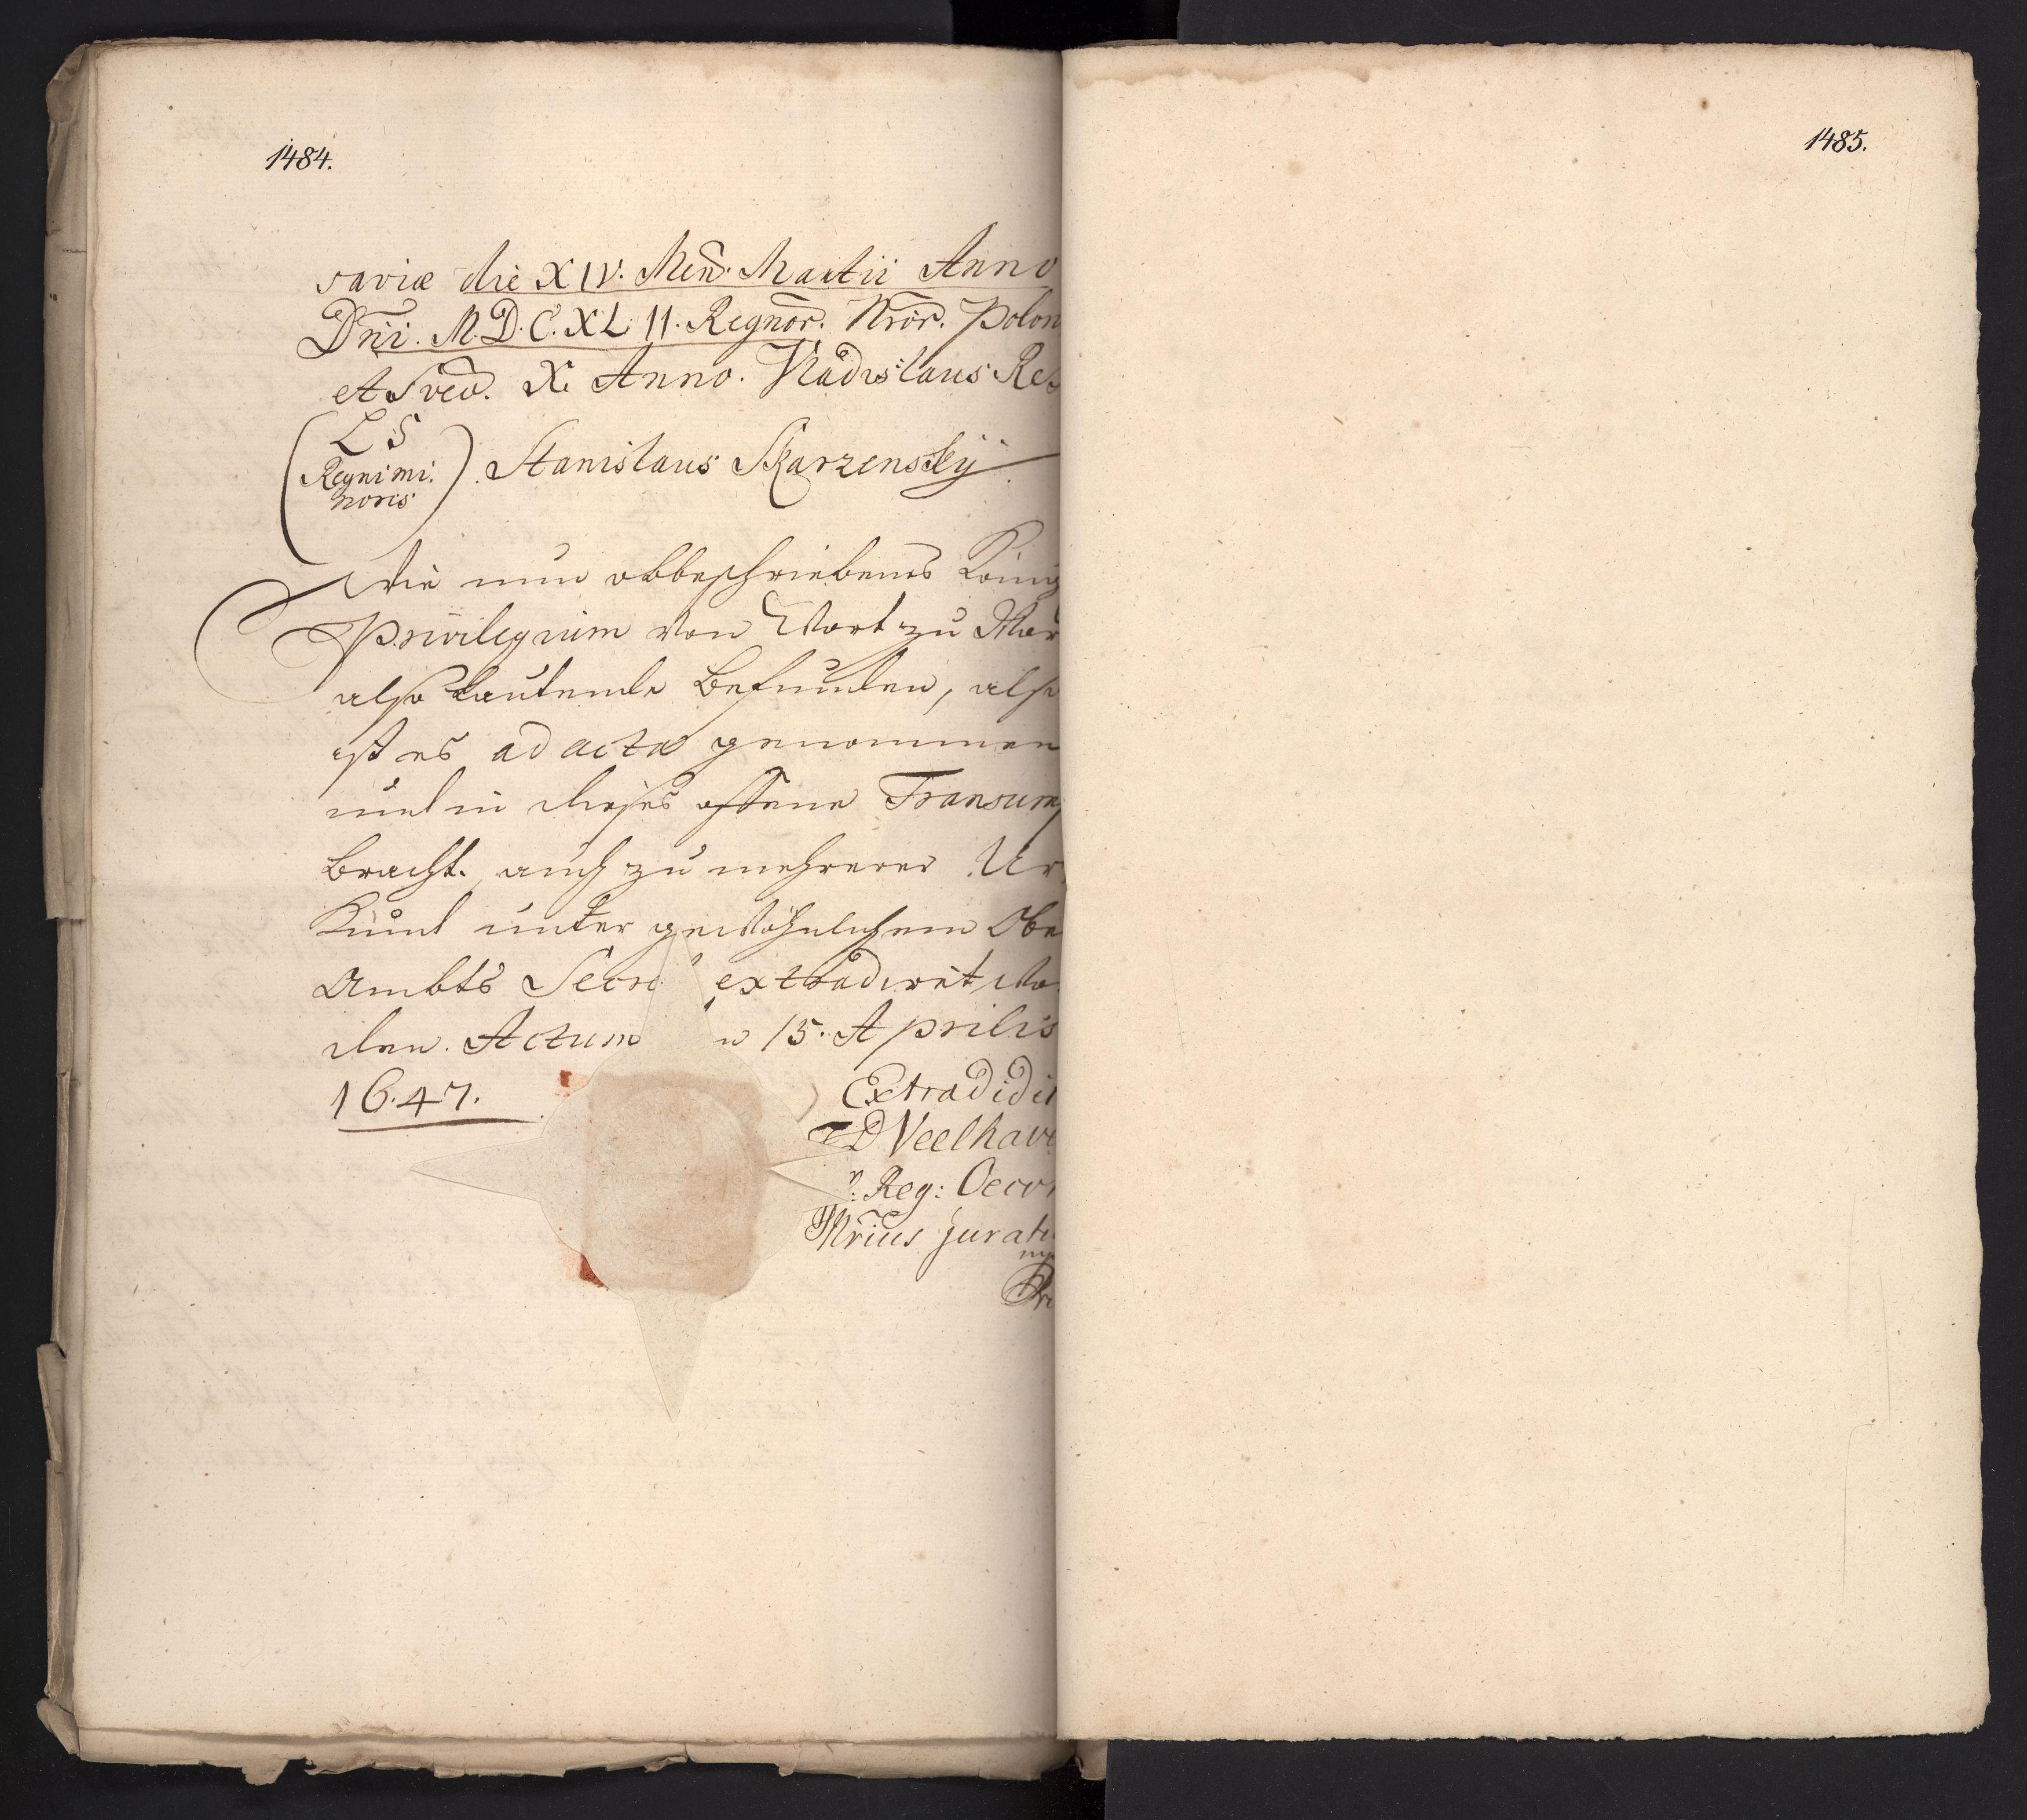 1484.
saviæ die XIV. Men. Martii Anno
Dni. M.D.C.XLII. Regnor. Nror. Polon
et Svec. X. Anno. Vladislaus Rex
LS
Regni mi:
noris
Stanislaus Skarzenskÿ
Wie nun obbeschriebenes König
Privilegium von Wort zu Wor
also lautende befunden, also
ist es ad acta genommen
und in dieses offene Transum
bracht, auch zu mehrerer Ur
Kund unter gewöhnlichem Obe
Ambts Secre extradiret wo
den. Actum 15. Aprilis
1647.
Extradidit
D Veelhave
Reg: Oeco
Nrius jurat
1485.